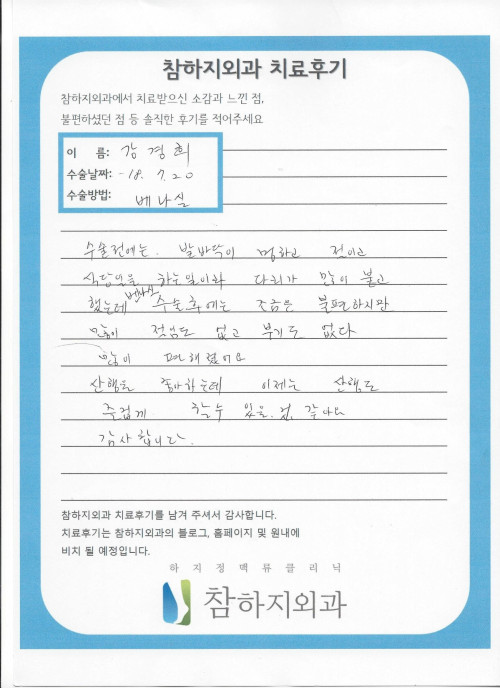 참하지외과 치료후기
참하지외과에서 치료받으신 소감과 느낀 점,
불편하셨던 점 등 솔직한 후기를 적어주세요
이 름: 강경희
수술날짜: -18. 7.20
수술방법: 베나실
수술전에는. 발바닥이 멍하고 전이고
식당일을 하는일이라 다리가 많이 붓고
했는데 베나실 수술후에는 조금은 불편하지만
많이 적림도 없고 부기도 없다
많이 편해졌어요
산행을 좋아하는데 이제는 산행도
즐겁게 할수 있을.것. 같아요
감사합니다.
참하지외과 치료후기를 남겨 주셔서 감사합니다.
치료후기는 참하지외과의 블로그, 홈페이지 및 원내에
비치 될 예정입니다.
하지정맥류클리닉
참하지외과